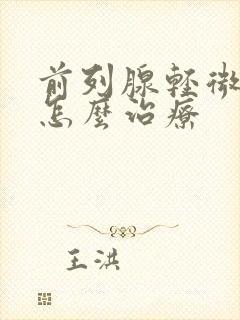 前列腺轻微
怎麼治療
王洪